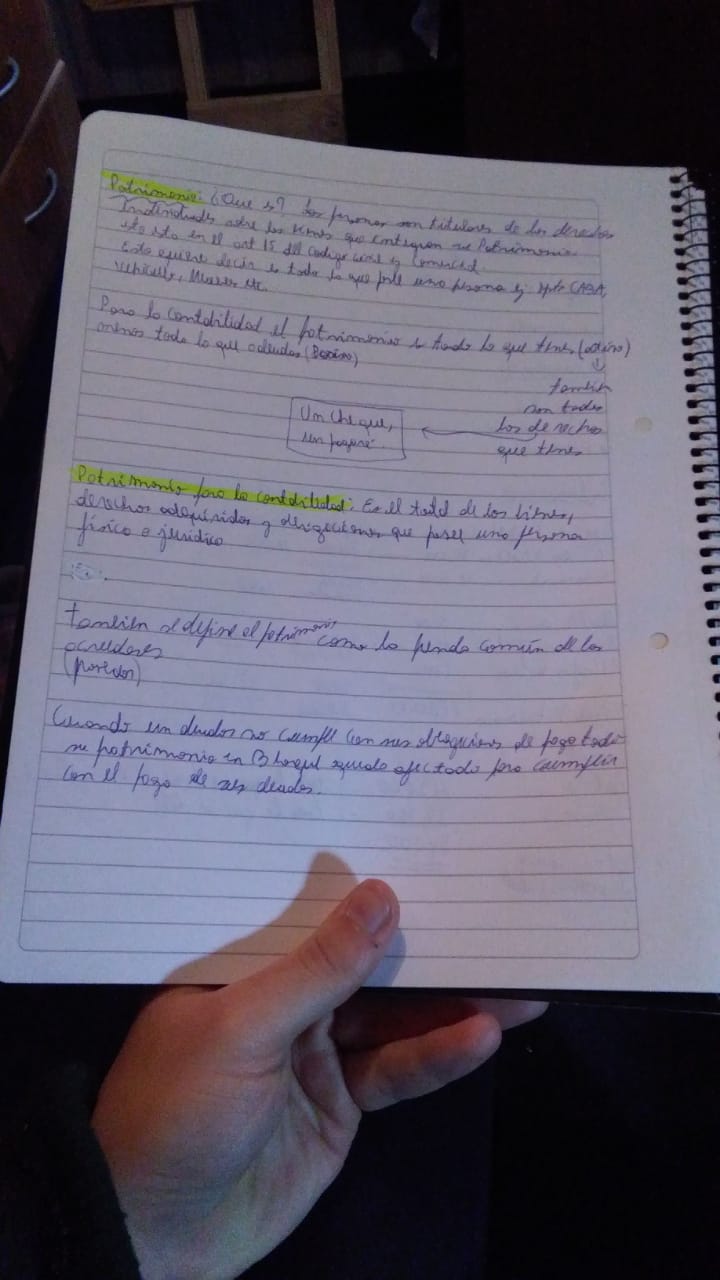 Patrimonio: ¿Que es? Las personas son titulares de los derechos
Individuales sobre los bienes que integran su Patrimonio
esto esta en el art 15 del codigo civil y comercial.
Esto quiere decir es todo lo que posee una persona ej: CASA,
vehiculo, Muebles etc.
Para la contabilidad el patrimonio es todo lo que tenes (activo)
menos todo lo que adeudas (Pasivo)
tambien
son todos
los derechos
que tenes
Un cheque,
un pagaré
Patrimonio para la contabilidad: Es el total de los bienes,
derechos adquiridos y obligaciones que posee una persona
física o juridica
tambien se define el patrimonio como la prenda común de los
acreedores
Cuando un deudor no cumple con sus obligaciones de pago todo
su patrimonio en Bloque queda afectado para cumplir
con el pago de sus deudas.